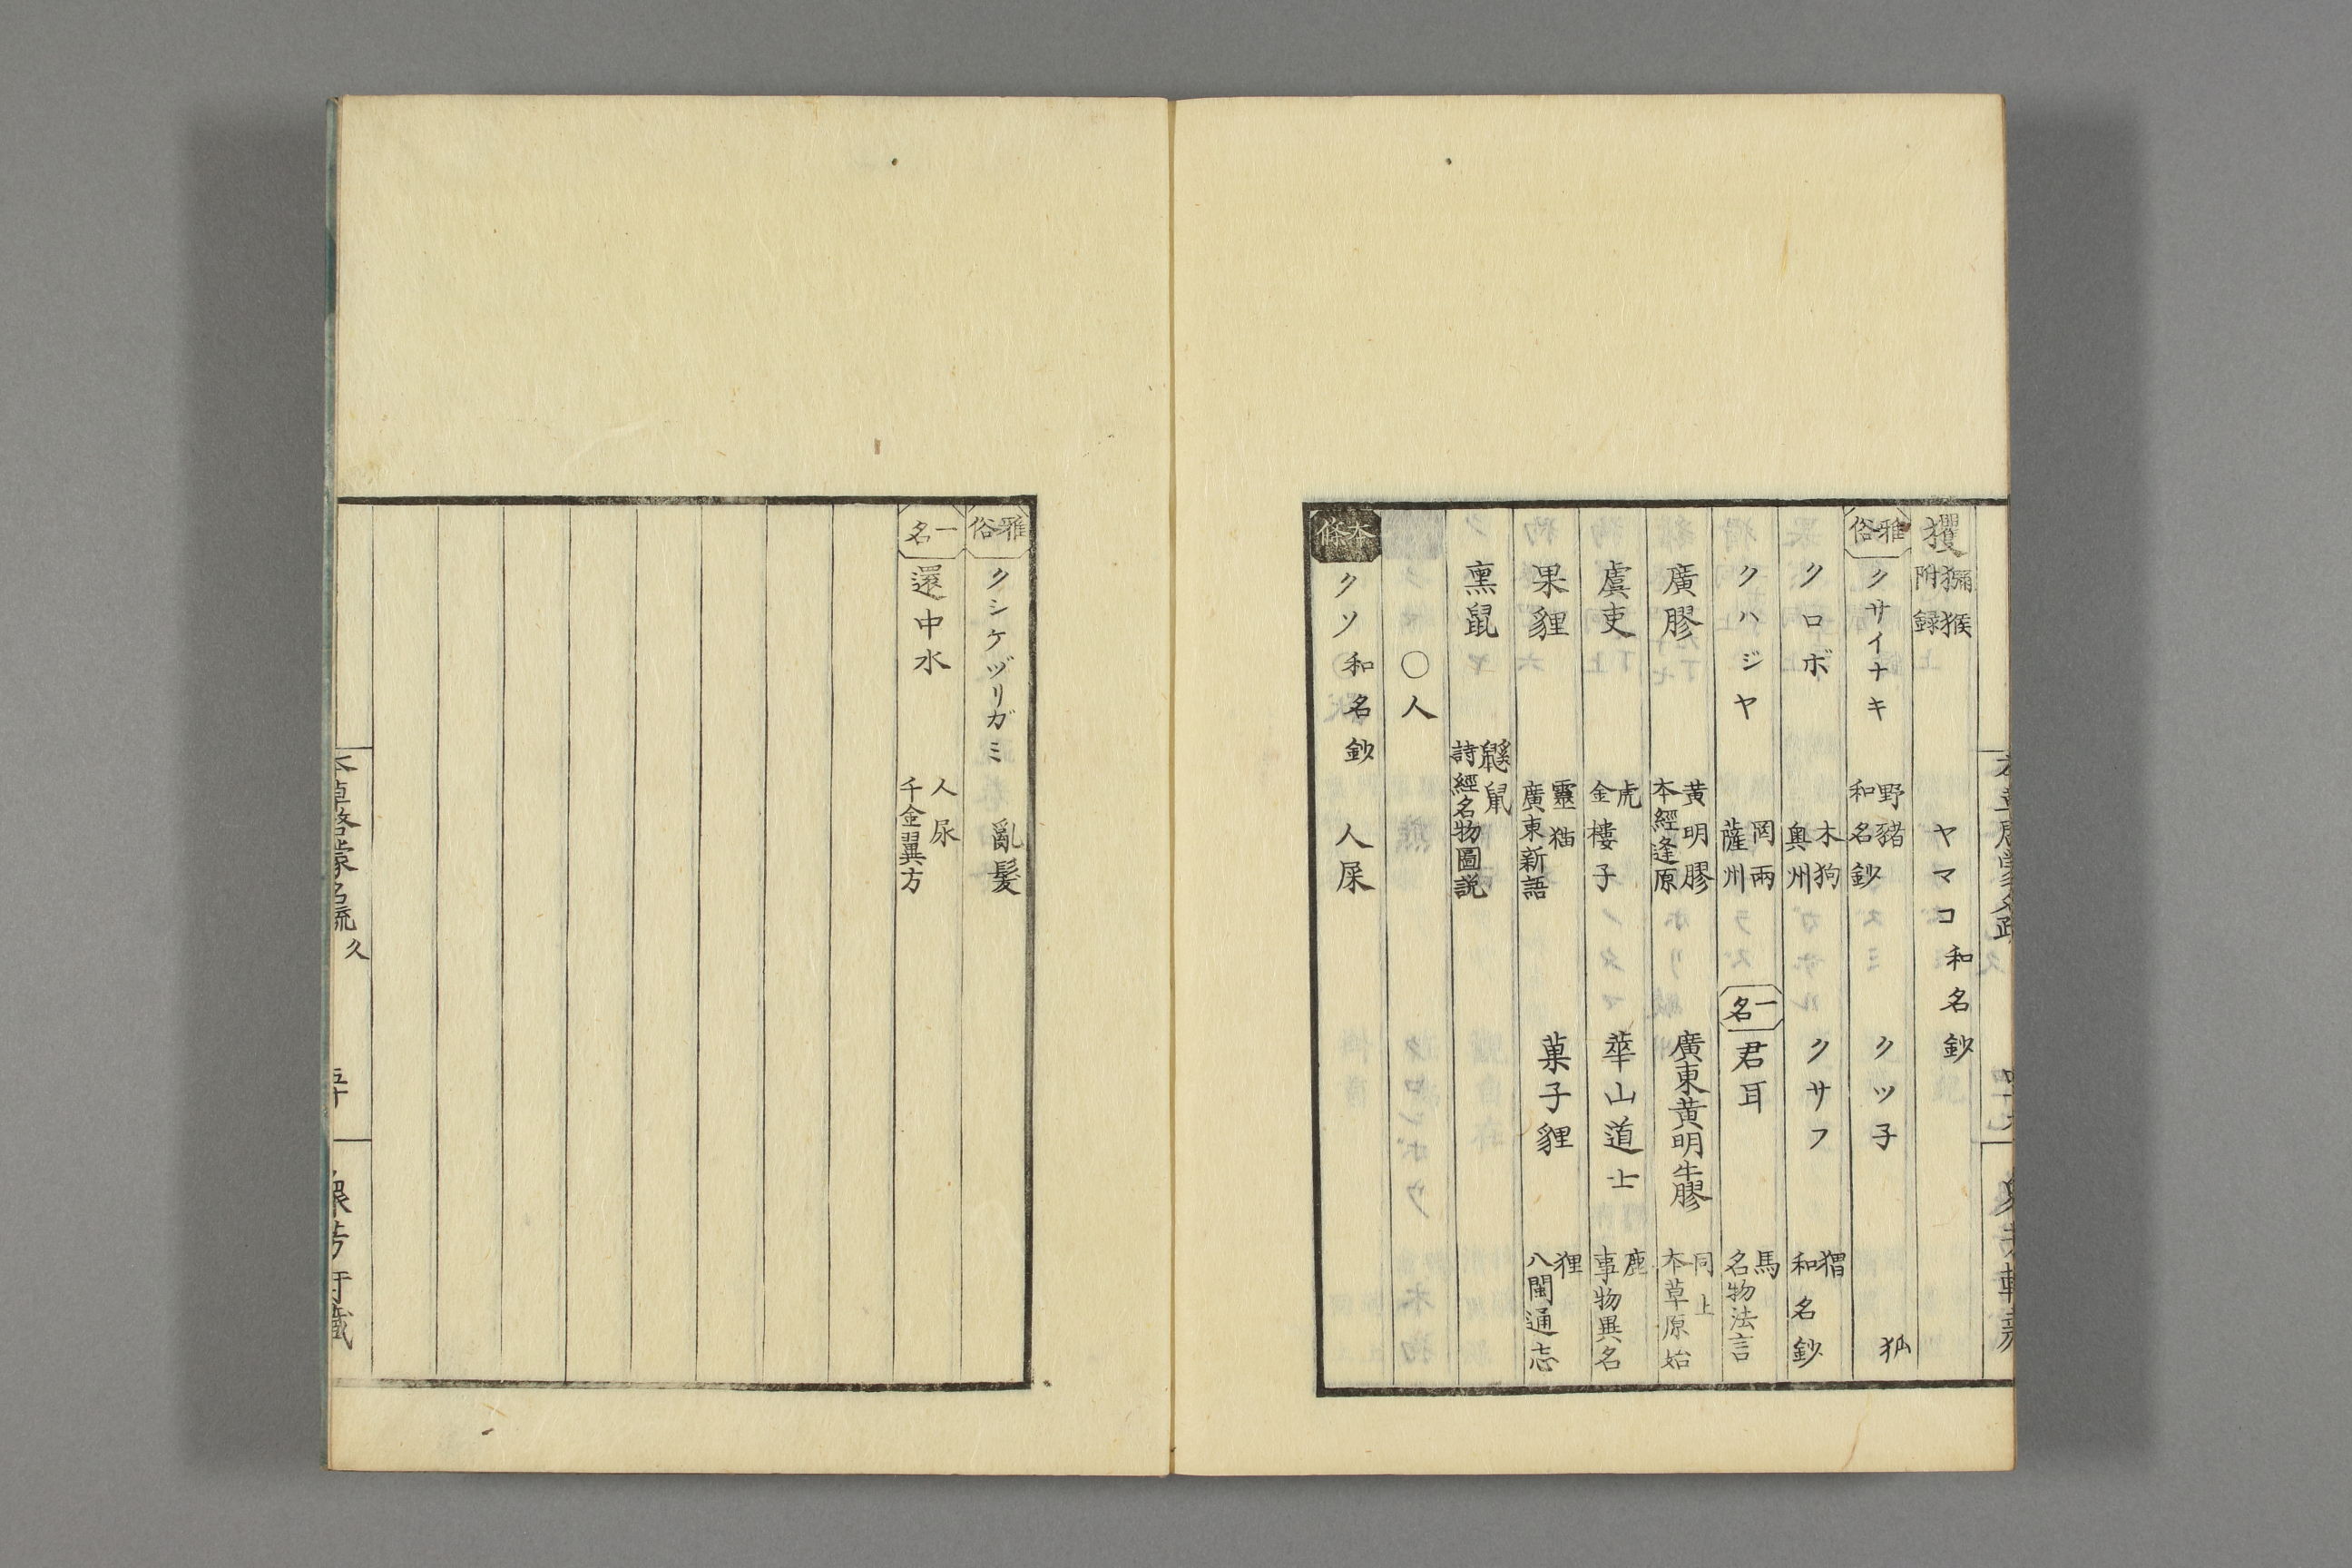 玃 獼猴附録 ヤマコ 和名鈔
雅俗 クサイナキ 野豬和名鈔 クツ子 狐
クロボ 木狗奥州 クサフ 猬和名鈔
クハジヤ 罔兩薩州 一名 君耳 馬名物法言
廣膠 黄明膠本經逢原 廣東黄明牛膠 同上本草原始
虞吏 虎金樓子 華山道士 鹿事物異名
果貍 靈猫廣東新語 菓子貍 狸八閩通志
熏鼠 鼷鼠詩經名物圖説
〇人
本條 クソ 和名鈔 人屎
雅俗 クシケヅリガミ 亂髪
一名 還中水 人尿千金翼方
本草啓蒙名疏 久 五十 衆芳軒藏